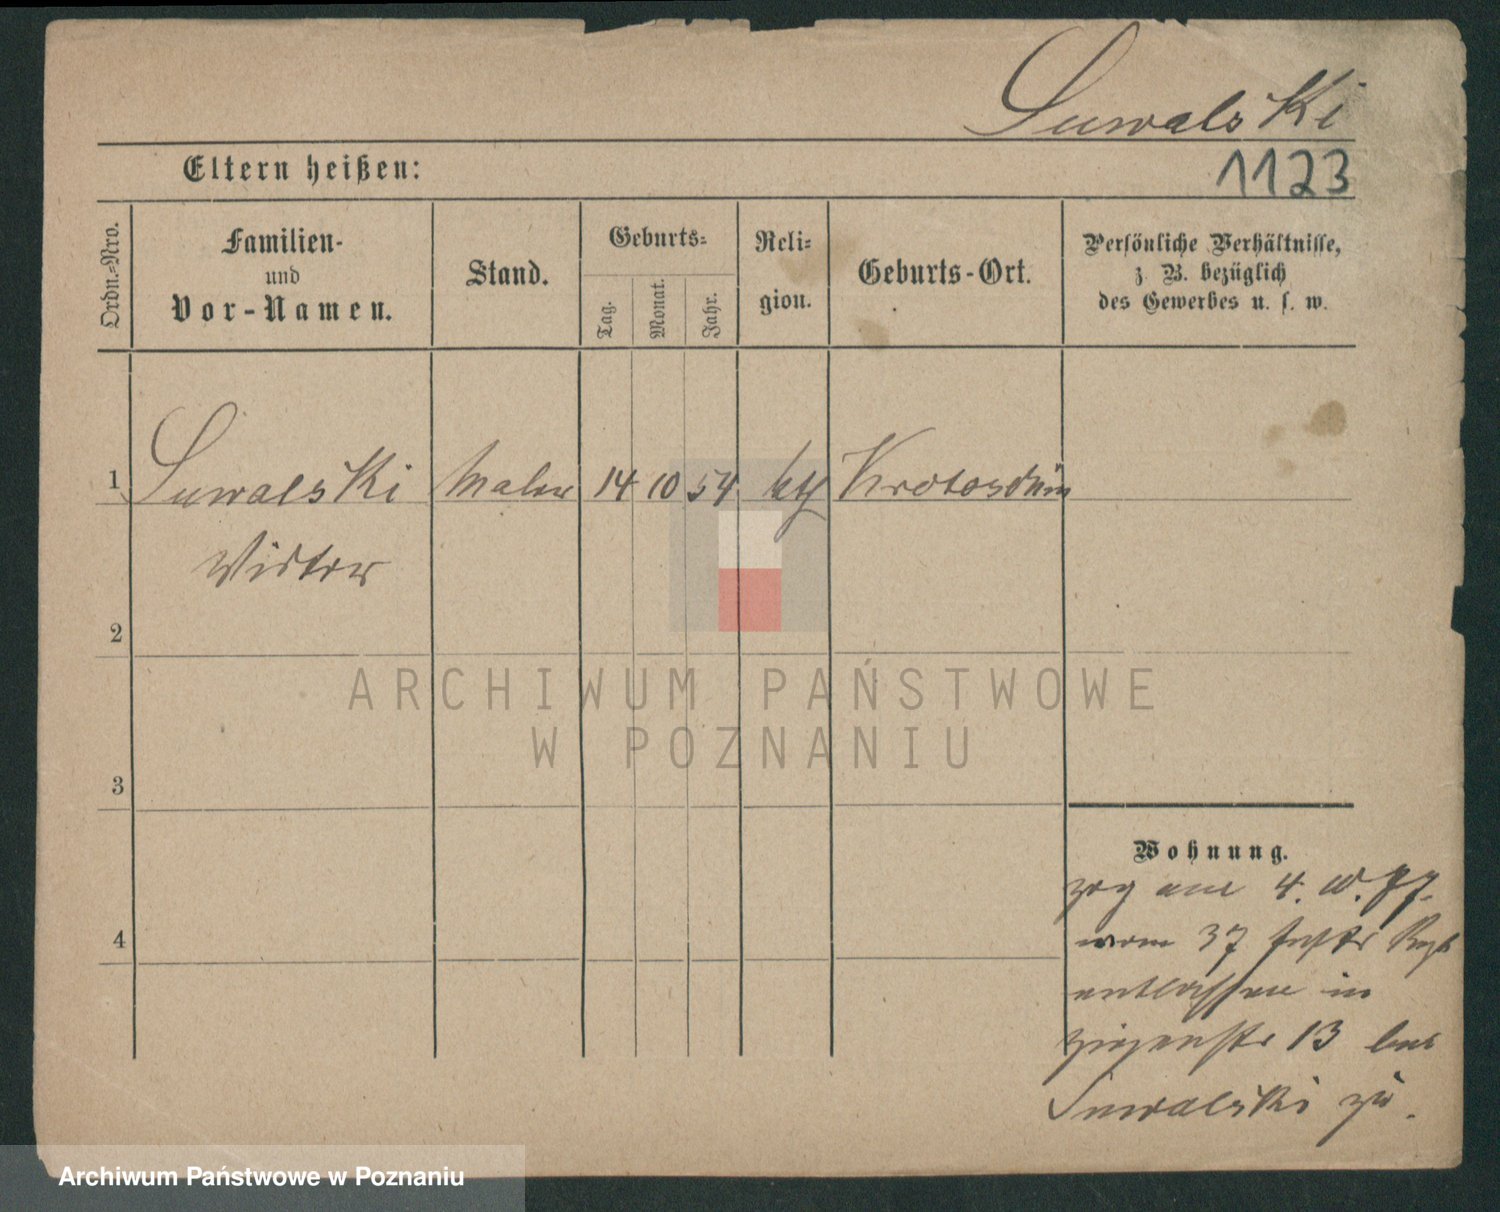 Suwalski
Eltern heißen:
1123
Ordn.=Nro.
Familien-
und
Vor-Namen.
Stand.
Geburts=
Tag.
Monat.
Jahr.
Reli=
gion.
Geburts-Ort.
Persönliche Verhältnisse,
z. B. bezüglich
des Gewerbes u. s. w.
1 Suwalski Maler 14 10 54 kth Krotoschin
Victor
2
3
4
Wohnung.
zog am 4.
vom 37
entlassen in
Ziegenstr 13 bei
Suwalski zu.
ARCHIWUM PAŃSTWOWE
W POZNANIU
Archiwum Państwowe w Poznaniu